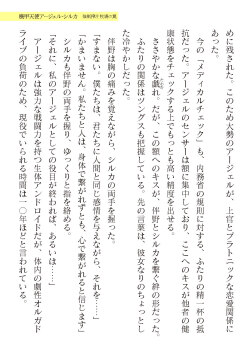 機甲天使アージェル・シルカ
めに残された。このため大勢のアージェルが、上官とプラトニックな恋愛関係に
あった。
今の「メディカルチェック」も、内務省の規則に対する、ふたりの精一杯の抵
抗だった。アージェルのセンサーは額に集中しており、ここへのキスが他者の健
康状態をチェックする上でもっとも高い精度を出せる。
ささやかな戯れ。だが、この額へのキスが、伴野とシルカを繋ぐ絆の形だった。
ふたりの関係はソングスも把握している。先の言葉は、彼女なりのちょっとし
た冷やかしだった。
伴野は胸の痛みを覚えながら、シルカの両手を握った。
「すまない。僕たちは、人間と同じ感情を与えながら、それを……」
「かまいません。私たちと人は、身体で繋がれずとも、心で繋がれると信じます」
シルカも伴野の両手を握り、ゆっくりと指を絡める。
「それに、私のアージェルとしての役目が終われば、あるいは……」
アージェルは強力な戦闘力を持つ生体アンドロイドだが、体内の劇性オルガド
ライブの負荷のため、現役でいられる時間は一〇年ほどと言われている。